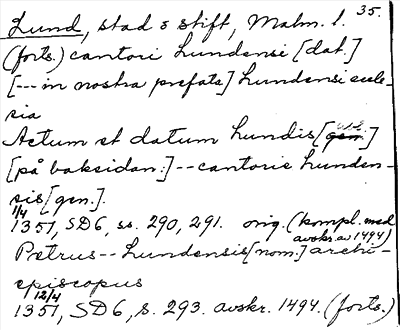 Lund, stad o stift, Malm. l. 35.
(forts.) cantori lundensi [dat.]
[--- in nostra prefata] lundensi eccle-
sia
Actum et datum lundis [gen.]
[på baksidan:] -- cantoris lunden-
sis [gen.].
1/4
1351, SD6, ss. 290, 291. orig. (kompl. med
avskr. av 1494)
Petrus -- lundensis [nom.] archi-
episcopus
12/4
1351, SD6, s. 293. avskr. 1494. (forts.)